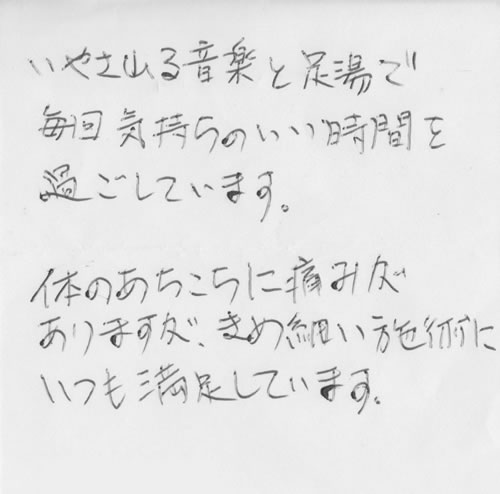 いやされる音楽と足湯で
毎回気持ちのいい時間を
過ごしています。
体のあちこちに痛みが
ありますが、きめ細い施術に
いつも満足しています。